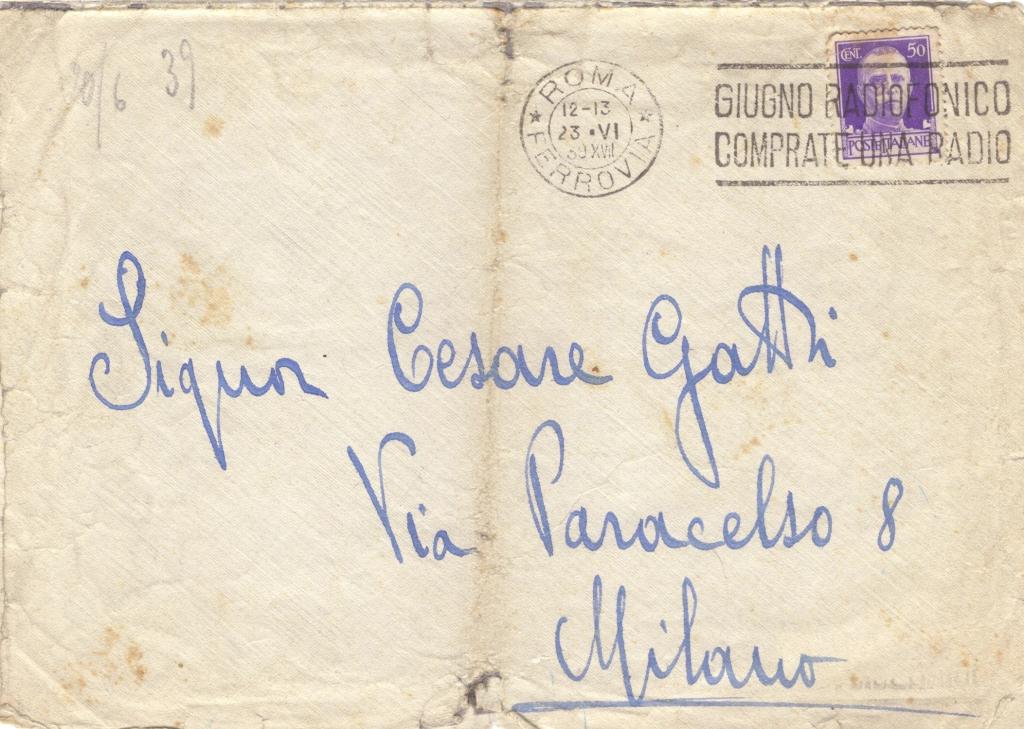 20/6 39
ROMA FERROVIA
12-13
23 • VI
39 XVII
CENT. 50
POSTE ITALIANE
GIUGNO RADIOFONICO
COMPRATE UNA RADIO
Signor Cesare Gatti
Via Paracelso 8
Milano